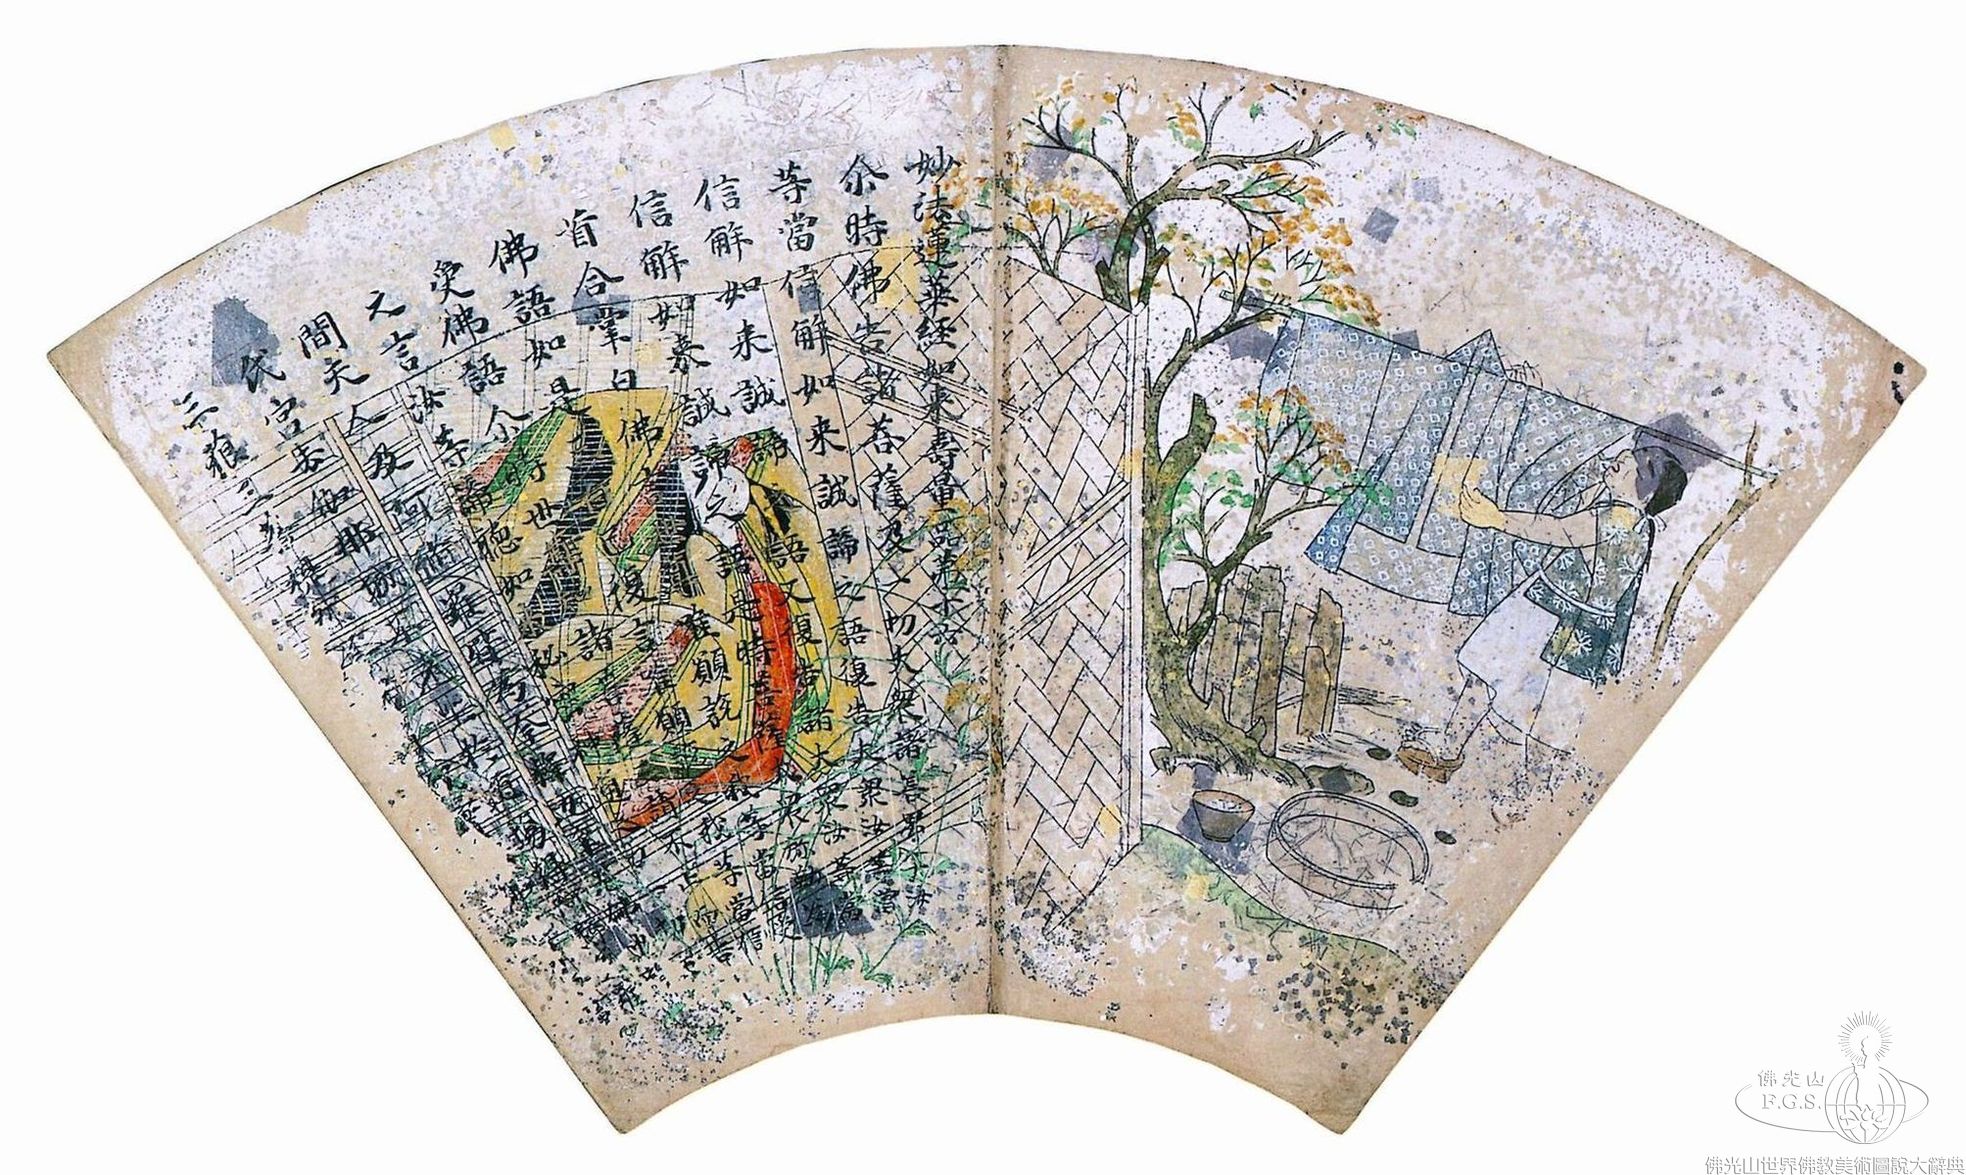 妙法蓮華經如来壽量品第十六
尒時佛告諸菩薩及一切大衆諸善男子汝
等當信解如来誠諦之語復告大衆汝等當
信解如来誠諦之語又復告諸大衆汝等當
信解如来誠諦之語是時菩薩大衆弥
首合掌白佛言唯願說之我等當信受
佛語如是白復言唯願說之我等當信
受佛語尒時世尊知諸菩薩三請不止而告
之言汝等諦聴如来秘密神通之力
間天人及阿脩羅皆為今釋
宮去伽耶城不遠坐於道場得
三藐三菩提
佛光山
F.G.S.
佛光山世界佛教美術圖說大辭典